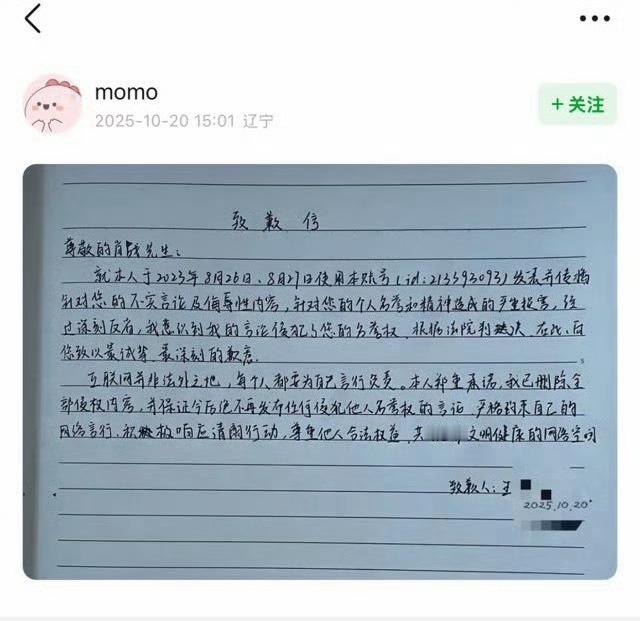 momo
2025-10-20 15:01 辽宁
+关注
致歉信
尊敬的肖战先生：
就本人于2023年8月26日、8月27日使用本账号（id:213393093）发表并传播
针对您的不实言论及侮辱性内容，针对您的个人名誉和精神造成的严重损害，经
过深刻反省，我意识到我的言论侵犯了您的名誉权，根据法院判决，在此，向
您致以最诚挚、最深刻的歉意。
互联网并非法外之地，每个人都要为自己言行负责。本人郑重承诺，我已删除全
部侵权内容，并保证今后绝不再发布任何侵犯他人名誉权的言论，严格约束自己的
网络言行，积极响应清朗行动，尊重他人合法权益，共 文明健康的网络空间
致歉人：王
2025.10.20